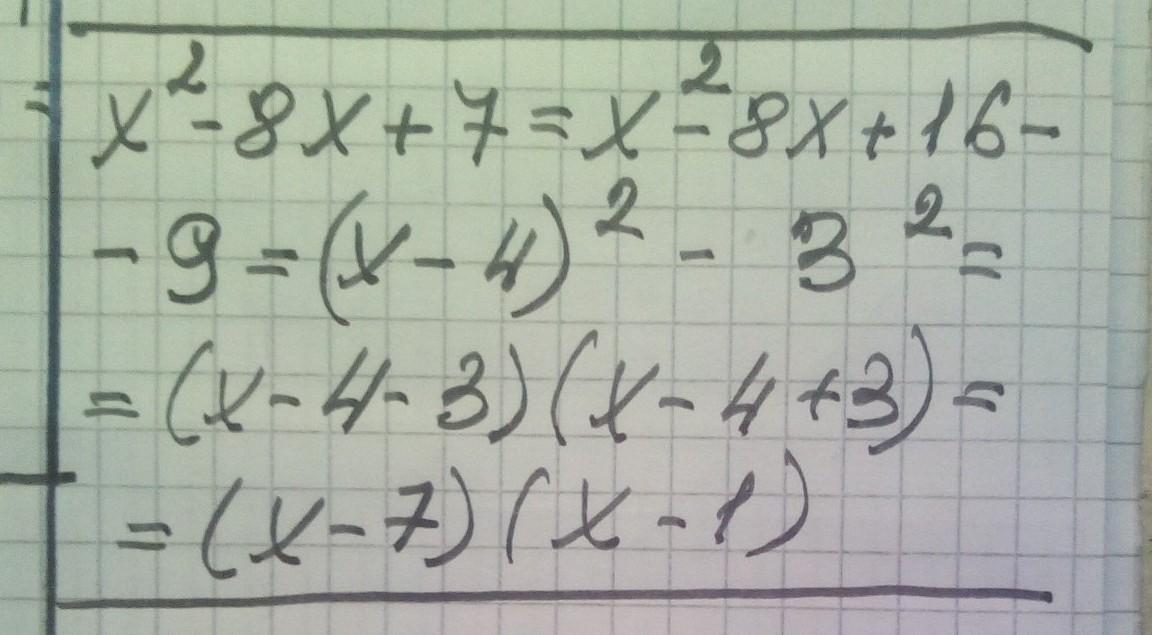 = x² - 8x + 7 = x² - 8x + 16 -
- 9 = (x - 4)² - 3² =
= (x - 4 - 3)(x - 4 + 3) =
= (x - 7)(x - 1)